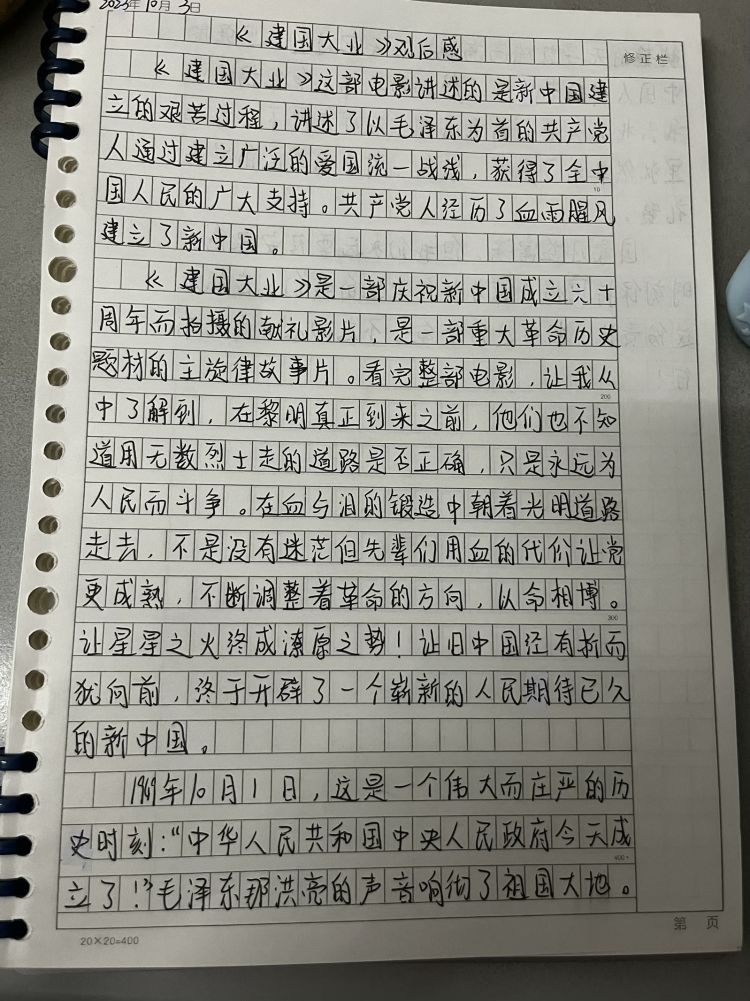 2023年10月3日
《建国大业》观后感
修正栏
《建国大业》这部电影讲述的是新中国建
立的艰苦过程，讲述了以毛泽东为首的共产党
人通过建立广泛的爱国统一战线，获得了全中
国人民的广大支持。共产党人经历了血雨腥风
建立了新中国。
《建国大业》是一部庆祝新中国成立六十
周年而拍摄的献礼影片，是一部重大革命历史
题材的主旋律故事片。看完整部电影，让我从
200
中了解到，在黎明真正到来之前，他们也不知
道用无数烈士走的道路是否正确，只是永远为
人民而斗争。在血与泪的锻造中朝着光明道路
走去，不是没有迷茫但先辈们用血的代价让党
更成熟，不断调整着革命的方向，以命相博。
300
让星星之火终成潦原之势！让旧中国经有折而
犹向前，终于开辟了一个崭新的人民期待已久
的新中国。
1969年10月1日，这是一个伟大而庄严的历
史时刻：“中华人民共和国中央人民政府今天成
400
立了！”毛泽东那洪亮的声音响彻了祖国大地。
第 页
20×20=400